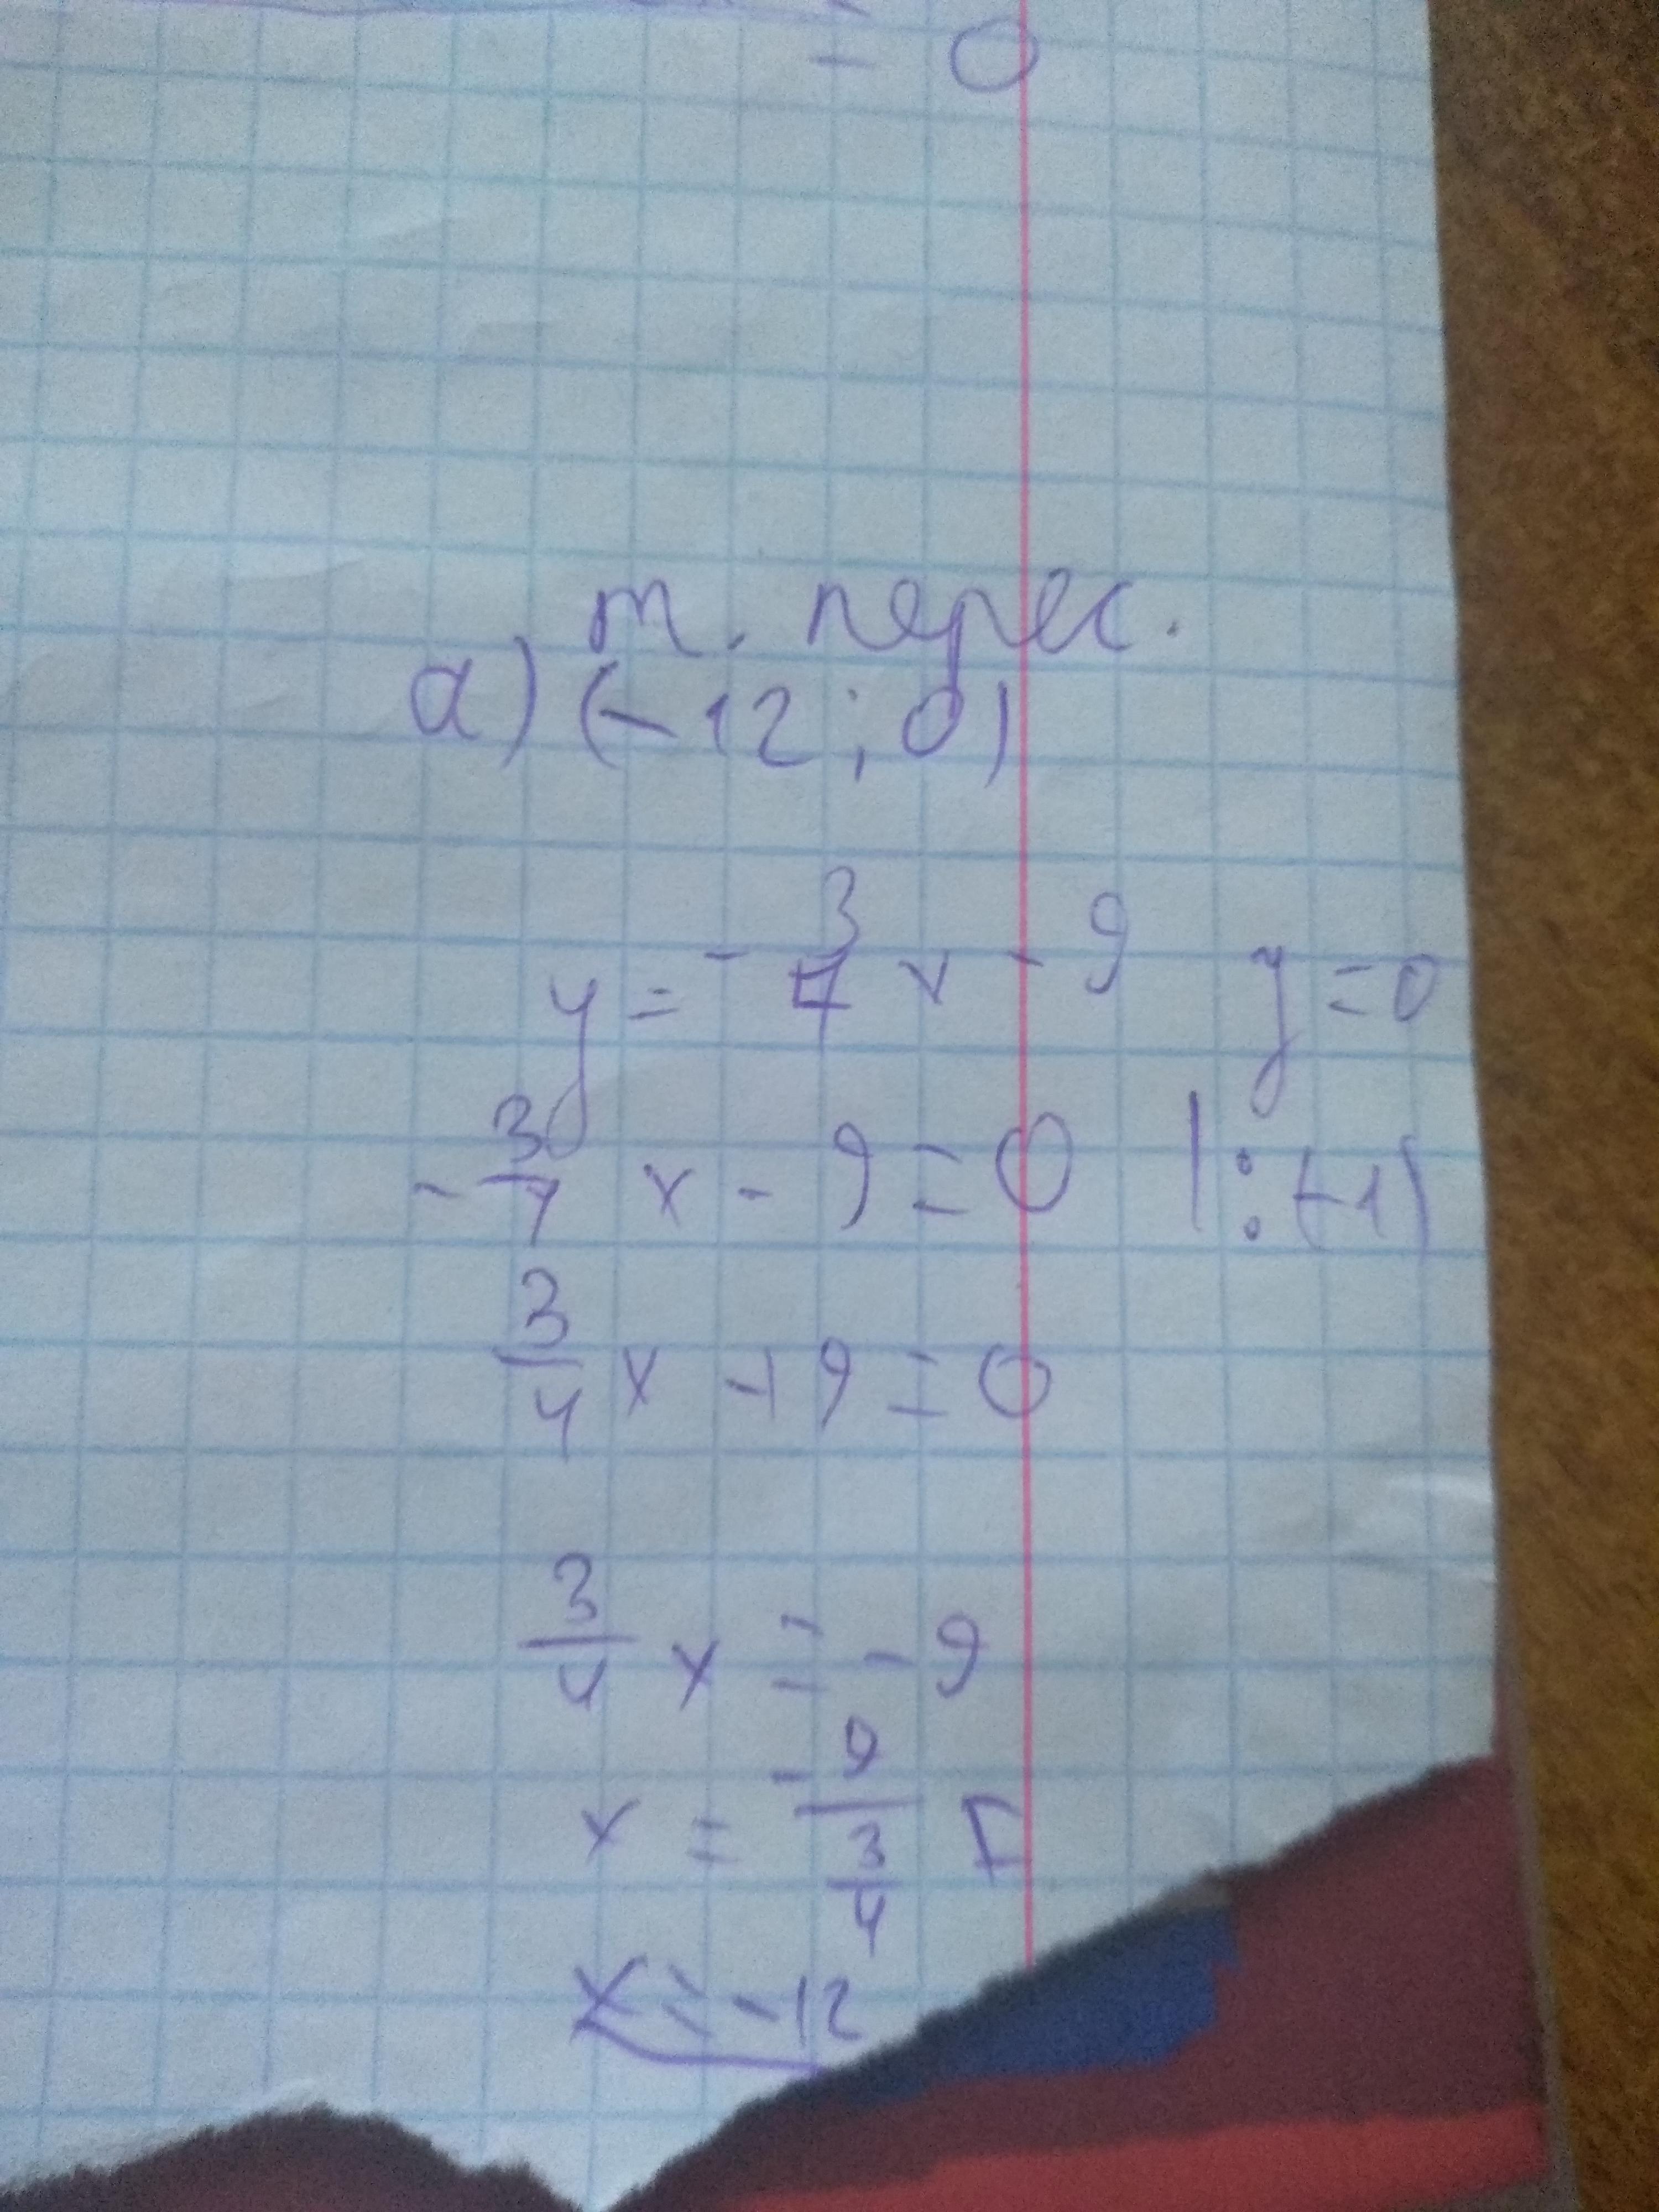 = 0
т. перес.
а) (-12; 0)
y = -3/4 x - 9 y = 0
-3/4 x - 9 = 0 | : (-1)
3/4 x + 9 = 0
3/4 x = -9
x = -9/(3/4)
x = -12